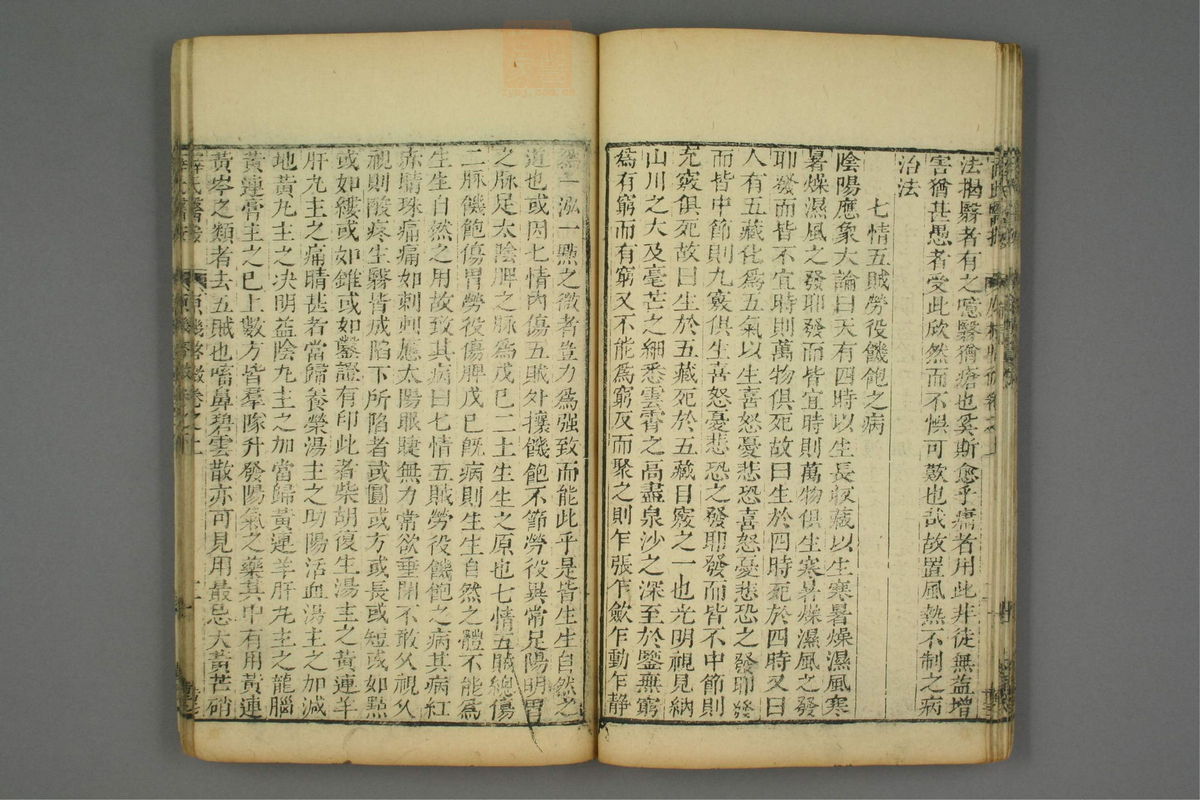 法揭翳者有之噫醫猶瘡也奚斯愈乎庸者用此非徒無益增
害猶甚愚者受此欣然而不惧可歎也哉故置風熱不制之病
治法
七情五賊勞役饑飽之病
陰陽應象大論曰天有四時以生長収藏以生寒暑燥濕風寒
暑燥濕風之發耶發而皆宜時則萬物俱生寒暑燥濕風之發
耶發而皆不宜時則萬物俱死故曰生於四時死於四時又曰
人有五藏化爲五氣以生喜怒憂悲恐喜怒憂悲恐之發耶發
而皆中節則九竅俱生喜怒憂悲恐之發耶發而皆不中節則
九竅俱死故曰生於五藏死於五藏目竅之一也光明視見納
山川之大及毫芒之細悉雲霄之高盡泉沙之深至於鑒無窮
爲有窮而有窮又不能爲窮反而聚之則乍張乍斂乍動乍静
爲一泓一點之微者豈力爲强致而能此乎是皆生生自然之
道也或因七情內傷五賊外攘饑飽不節勞役異常足陽明胃
之脉足太陰脾之脉爲戊己二土生生之原也七情五賊總傷
二脉饑飽傷胃勞役傷脾戊己旣病則生生自然之體不能爲
生生自然之用故致其病曰七情五賊勞役饑飽之病其病紅
赤睛珠痛痛如刺刺應太陽眼睫無力常欲垂閉不敢乆視乆
視則酸疼生翳皆成陷下所陷者或圓或方或長或短或如點
或如縷或如錐或如鑿證有印此者柴胡復生湯主之黃連羊
肝丸主之痛睛甚者當歸養榮湯主之助陽活血湯主之加減
地黃丸主之决明益陰丸主之加當歸黃連羊肝丸主之龍腦
黃連膏主之已上數方皆羣隊升發陽氣之藥其中有用黃連
黃芩之類者去五賊也㗜鼻碧雲散亦可見用最忌大黃芒硝
薛氏醫按
原機啓微卷之上